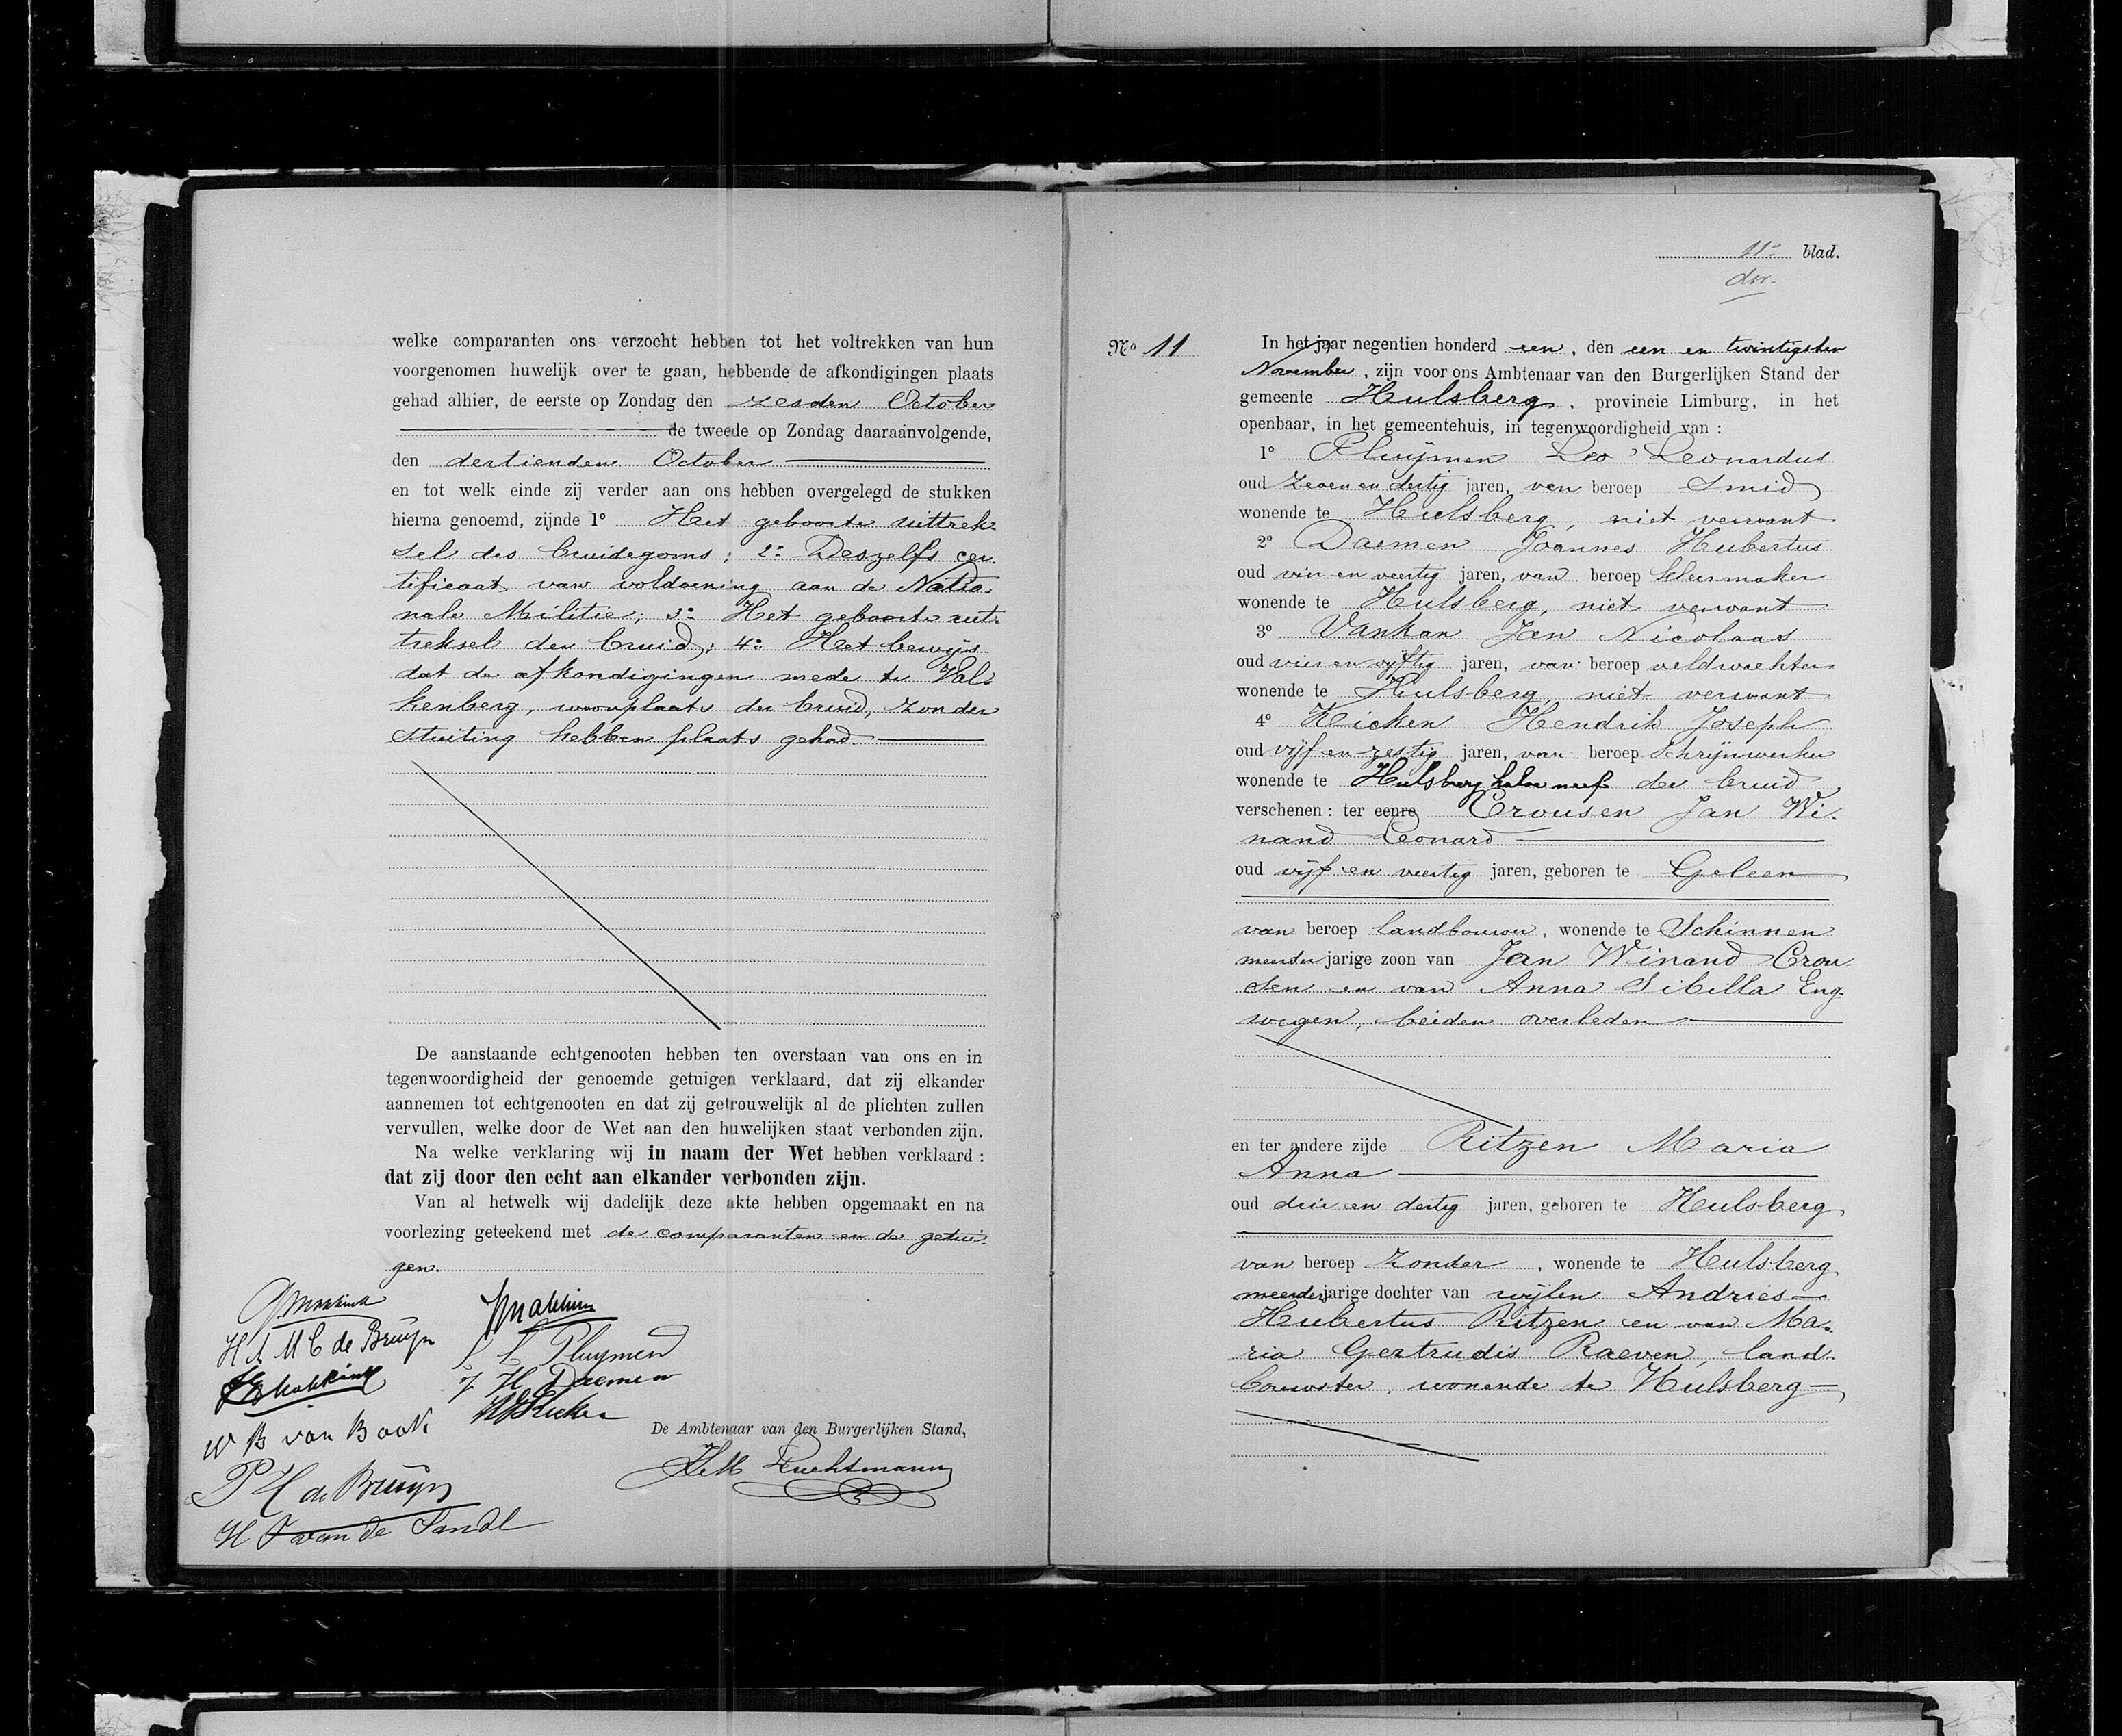 welke comparanten ons verzocht hebben tot het voltrekken van hun
voorgenomen huwelijk over te gaan, hebbende de afkondigingen plaats
gehad alhier, de eerste op Zondag den zesden October
de tweede op Zondag daaraanvolgende,
den dertienden October
en tot welk einde zij verder aan ons hebben overgelegd de stukken
hierna genoemd, zijnde 1º Het geboorte uittrek-
sel des bruidegoms; 2º Deszelfs cer-
tificaat van voldoening aan de Natio-
nale Militie; 3º Het geboorte uit-
treksel der bruid; 4º Het bewijs
dat de afkondigingen mede te Val-
kenberg, woonplaats der bruid, zonder
stuiting hebben plaats gehad.
De aanstaande echtgenooten hebben ten overstaan van ons en in
tegenwoordigheid der genoemde getuigen verklaard, dat zij elkander
aannemen tot echtgenooten en dat zij getrouwelijk al de plichten zullen
vervullen, welke door de Wet aan den huwelijken staat verbonden zijn.
Na welke verklaring wij in naam der Wet hebben verklaard :
dat zij door den echt aan elkander verbonden zijn.
Van al hetwelk wij dadelijk deze akte hebben opgemaakt en na
voorlezing geteekend met de comparanten en de getui-
gen.
H A M C de Bruijn
L L Pluymen
J H Daemen
HJ Kicken
W B van Baak
P H de Bruijn
H J van de Sandt
De Ambtenaar van den Burgerlijken Stand,
11e blad.
Nº 11
In het jaar negentien honderd een, den een en twintigsten
November, zijn voor ons Ambtenaar van den Burgerlijken Stand der
gemeente Hulsberg, provincie Limburg, in het
openbaar, in het gemeentehuis, in tegenwoordigheid van :
1º Pluijmen Leo Leonardus
oud zeven en dertig jaren, van beroep Smid
wonende te Hulsberg, niet verwant
2º Daemen Joannes Hubertus
oud vier en veertig jaren, van beroep kleermaker
wonende te Hulsberg, niet verwant
3º Vankan Jan Nicolaas
oud vier en vijftig jaren, van beroep veldwachter
wonende te Hulsberg, niet verwant
4º Kicken Hendrik Joseph
oud vijf en zestig jaren, van beroep Schrijnwerker
wonende te Hulsberg halve neef der bruid
verschenen : ter eenre Crousen Jan Wi-
nand Leonard
oud vijf en veertig jaren, geboren te Geleen
van beroep landbouwer, wonende te Schinnen
meerderjarige zoon van Jan Winand Crou-
sen en van Anna Sibilla Eng-
wegen, beiden overleden
en ter andere zijde Ritzen Maria
Anna
oud drie en dertig jaren, geboren te Hulsberg
van beroep zonder, wonende te Hulsberg
meerderjarige dochter van wijlen Andries
Hubertus Ritzen en van Ma-
ria Gertrudis Raeven, land-
bouwster, wonende te Hulsberg